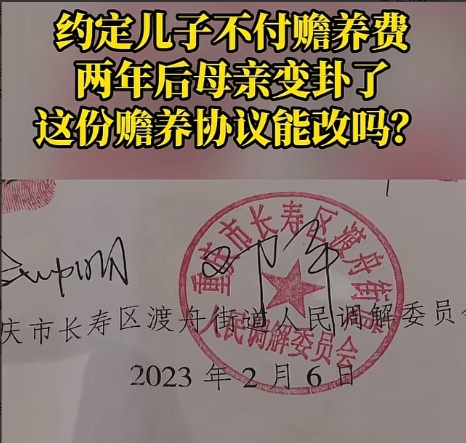 约定儿子不付赡养费
两年后母亲变卦了
这份赡养协议能改吗?
重庆市长寿区渡舟街道
人民调解委员会
庆市长寿区渡舟街道人民调解委员会
2023年2月6日